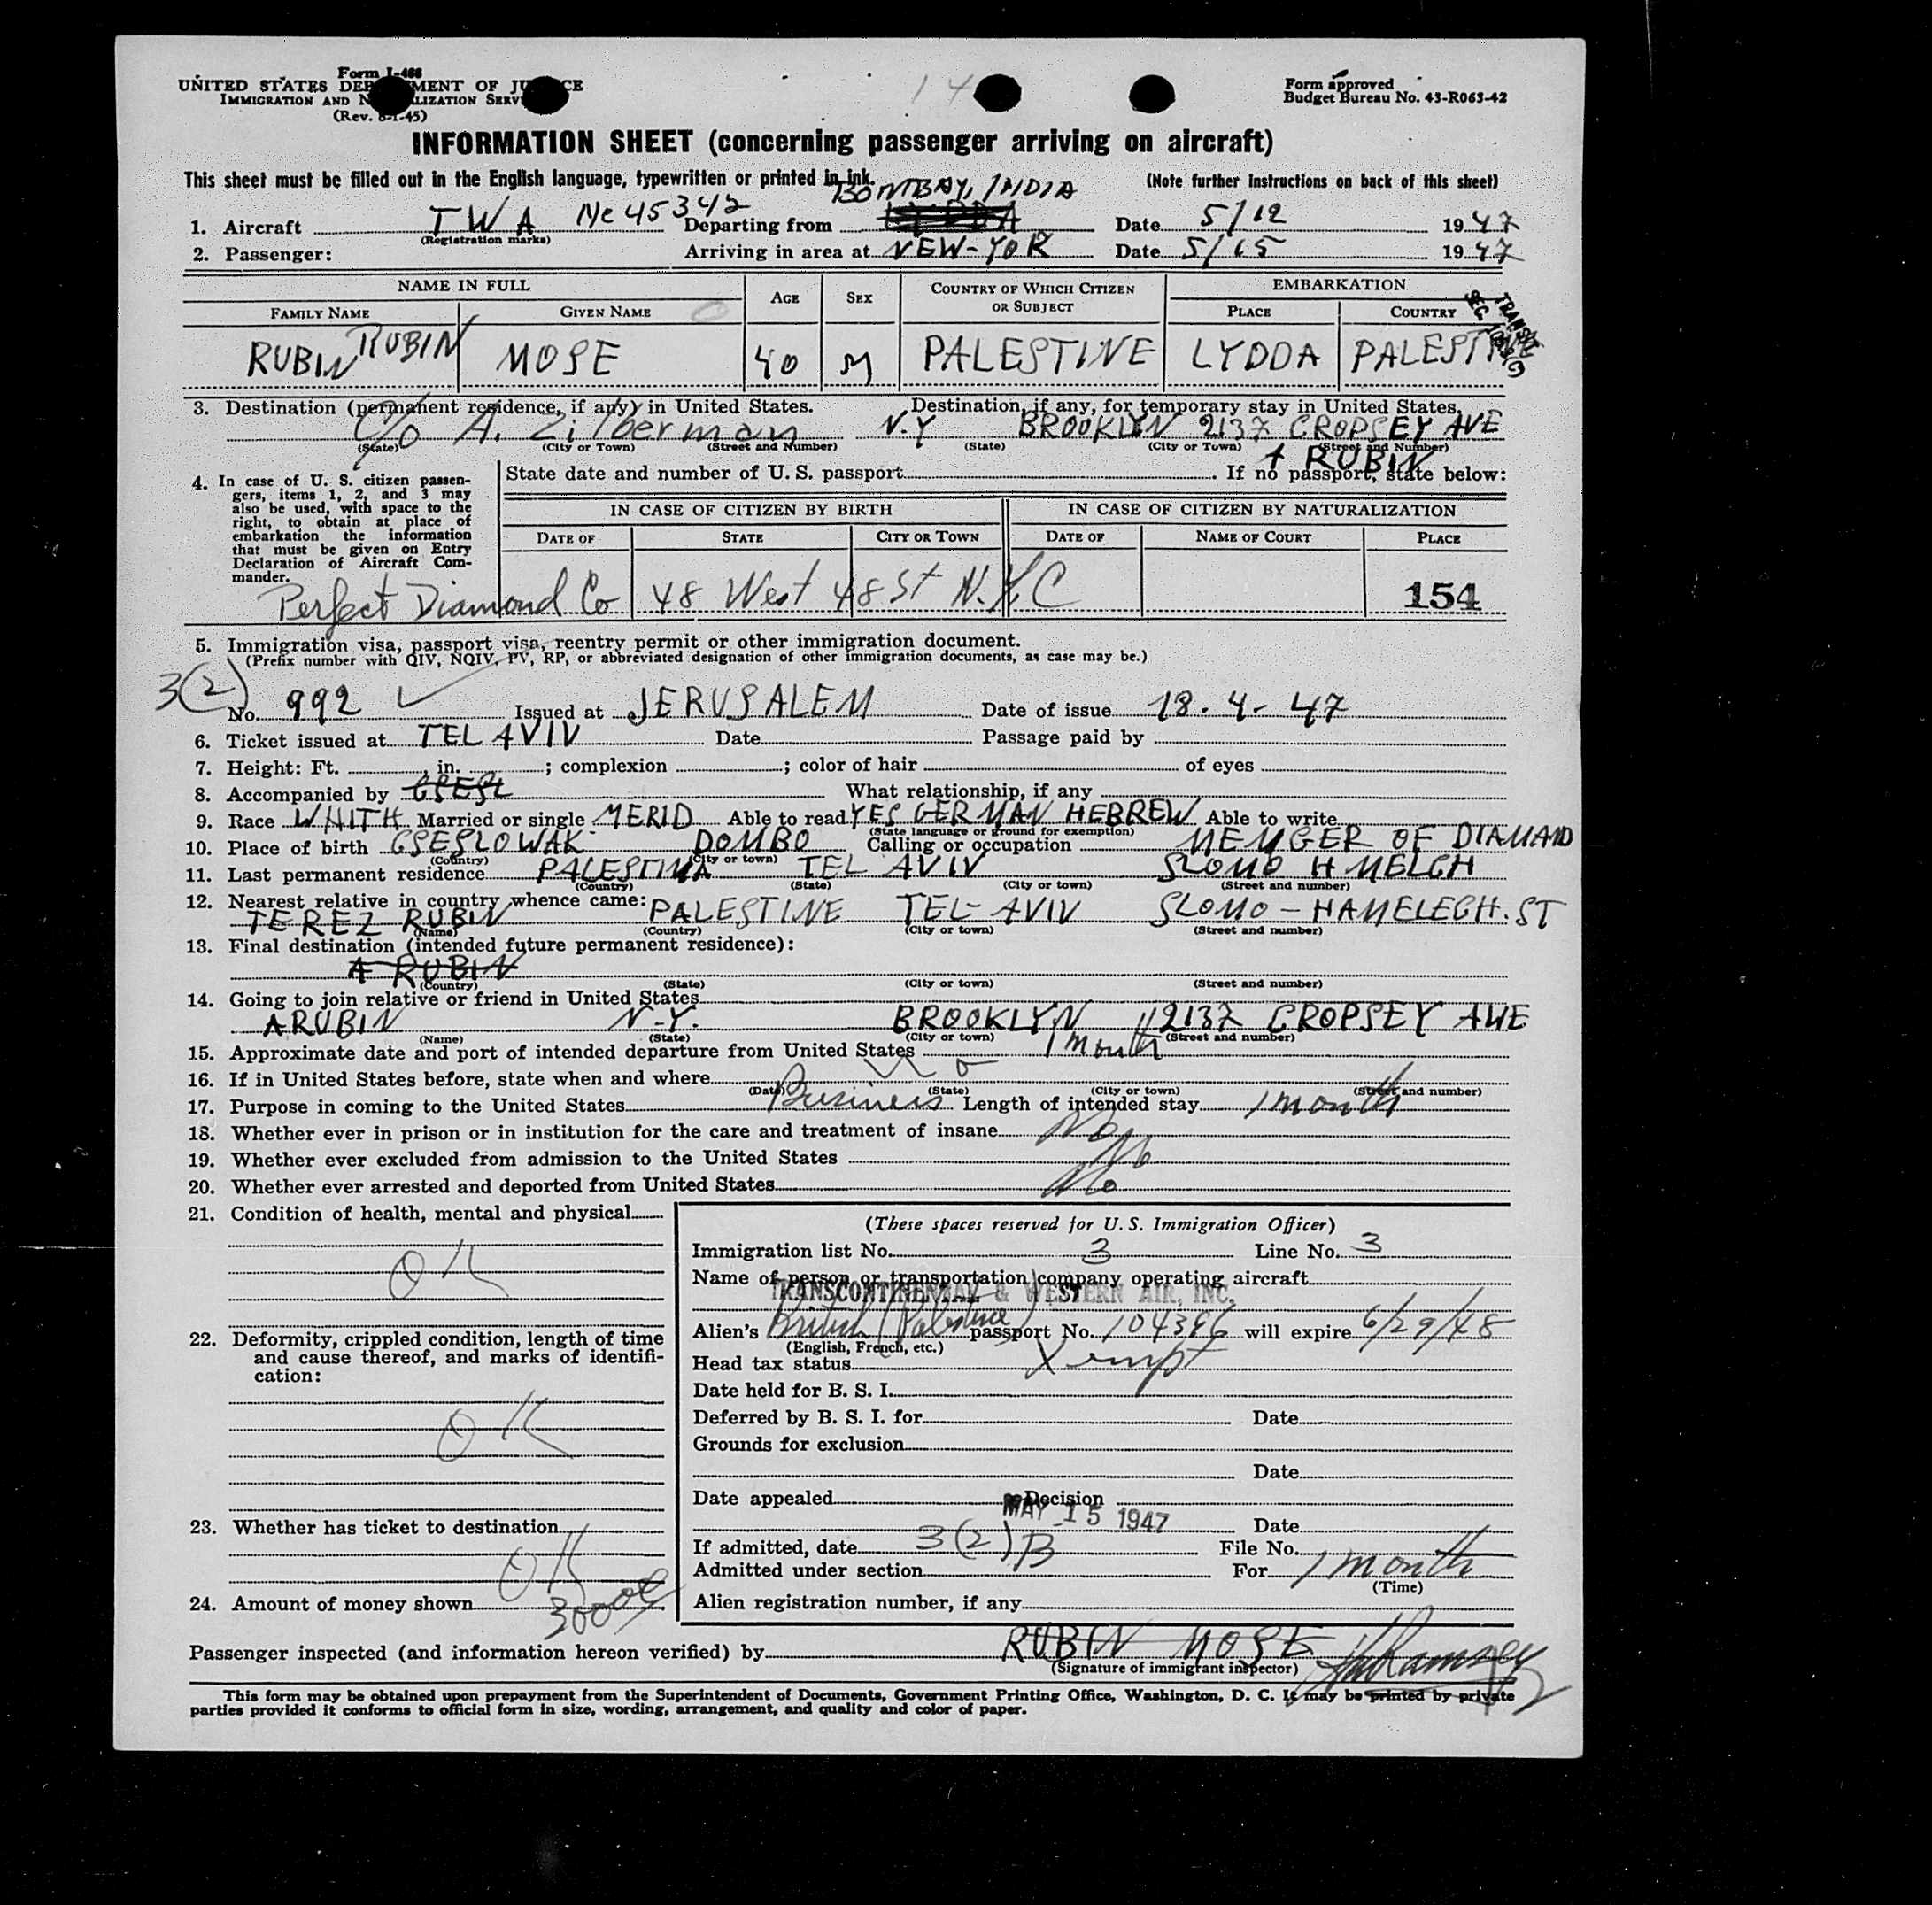 Form I-466
UNITED STATES DEPARTMENT OF JUSTICE
IMMIGRATION AND NATURALIZATION SERVICE
(Rev. 8-1-45)
14
Form approved
Budget Bureau No. 43-R063-42
INFORMATION SHEET (concerning passenger arriving on aircraft)
This sheet must be filled out in the English language, typewritten or printed in ink. (Note further instructions on back of this sheet)
BOMBAY, INDIA
1. Aircraft TWA Nc 45342 Departing from LYDDA Date 5/12 1947
(Registration marks)
2. Passenger: Arriving in area at NEW-YOR Date 5/15 1947
NAME IN FULL AGE SEX COUNTRY OF WHICH CITIZEN OR SUBJECT EMBARKATION
FAMILY NAME GIVEN NAME PLACE COUNTRY
RUBIN RUBIN MOSE 40 M PALESTINE LYDDA PALESTINE
3. Destination (permanent residence, if any) in United States. Destination, if any, for temporary stay in United States.
C/o A. Zilberman N.Y BROOKLYN 2137 CROPSEY AVE
(State) (City or Town) (Street and Number) (State) (City or Town) (Street and Number)
A RUBIN
4. In case of U. S. citizen passengers, items 1, 2, and 3 may also be used, with space to the right, to obtain at place of embarkation the information that must be given on Entry Declaration of Aircraft Commander.
State date and number of U. S. passport. If no passport, state below:
IN CASE OF CITIZEN BY BIRTH IN CASE OF CITIZEN BY NATURALIZATION
DATE OF STATE CITY OR TOWN DATE OF NAME OF COURT PLACE
Perfect Diamond Co 48 West 48 St N.Y.C 154
5. Immigration visa, passport visa, reentry permit or other immigration document.
(Prefix number with QIV, NQIV, PV, RP, or abbreviated designation of other immigration documents, as case may be.)
3(2)
No. 992 Issued at JERUSALEM Date of issue 18.4-47
6. Ticket issued at TEL AVIV Date Passage paid by
7. Height: Ft. , in. ; complexion ; color of hair of eyes
8. Accompanied by What relationship, if any
9. Race WHITH Married or single MERID Able to read YES GERMAN HEBREW Able to write
(State language or ground for exemption)
10. Place of birth CSESLOWAK DOMBO Calling or occupation MEMGER OF DIAMAND
(Country) (City or town)
11. Last permanent residence PALESTINA TEL AVIV SLOMO H MELCH
(Country) (State) (City or town) (Street and number)
12. Nearest relative in country whence came: PALESTINE TEL-AVIV SLOMO-HAMELECH.ST
TEREZ RUBIN
(Name) (Country) (City or town) (Street and number)
13. Final destination (intended future permanent residence):
A RUBIN
(Country) (State) (City or town) (Street and number)
14. Going to join relative or friend in United States
ARUBIN N-Y. BROOKLYN 2137 CROPSEY AWE
(Name) (State) (City or town) (Street and number)
15. Approximate date and port of intended departure from United States 1 month
16. If in United States before, state when and where No
(Date) (State) (City or town) (Street and number)
17. Purpose in coming to the United States Business Length of intended stay 1 month
18. Whether ever in prison or in institution for the care and treatment of insane No
19. Whether ever excluded from admission to the United States No
20. Whether ever arrested and deported from United States No
21. Condition of health, mental and physical
OK
22. Deformity, crippled condition, length of time and cause thereof, and marks of identification:
OK
23. Whether has ticket to destination
OK
24. Amount of money shown 300.00
(These spaces reserved for U. S. Immigration Officer)
Immigration list No. 3 Line No. 3
Name of person or transportation company operating aircraft
TRANSCONTINENTAL & WESTERN AIR, INC.
Alien's British (Palestine) passport No. 104386 will expire 6/29/48
(English, French, etc.)
Head tax status Xempt
Date held for B. S. I.
Deferred by B. S. I. for Date
Grounds for exclusion
Date
Date appealed Decision
MAY 15 1947 Date
If admitted, date File No.
3(2)B
Admitted under section For 1 month
(Time)
Alien registration number, if any
Passenger inspected (and information hereon verified) by RUBIN MOSE
(Signature of immigrant inspector)
This form may be obtained upon prepayment from the Superintendent of Documents, Government Printing Office, Washington, D. C. It may be printed by private
parties provided it conforms to official form in size, wording, arrangement, and quality and color of paper.